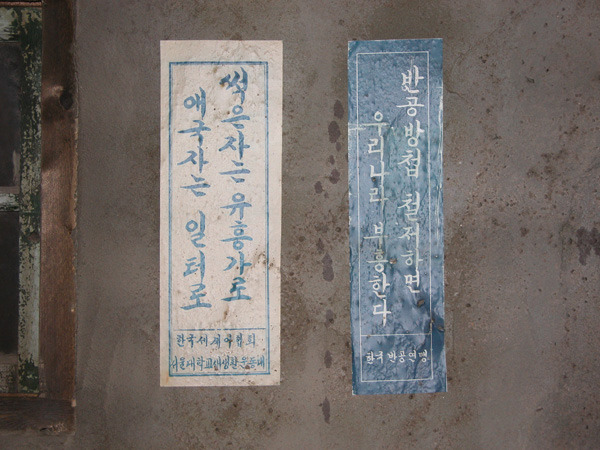 썩은자는 유흥가로
애국자는 일터로
한국세계아협회
서울대학교새생활운동대
반공방첩 철저하면
우리나라 부흥한다
한국반공연맹